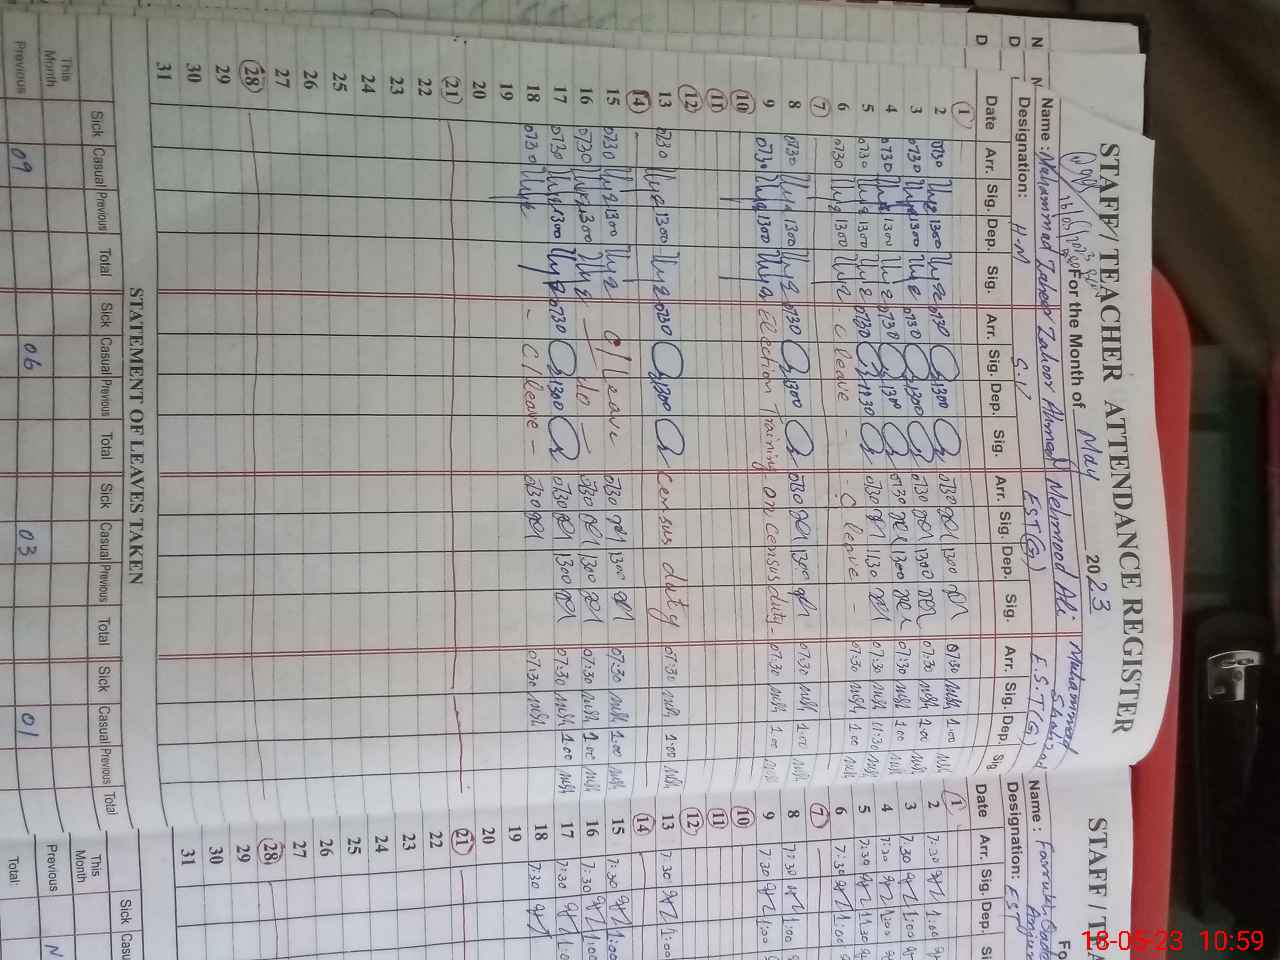 STAFF / TEACHER ATTENDANCE REGISTER
16/05/2023
For the Month of May 2023
Name : Muhammad Zaheer Zahoor Ahmad Mehmood Ali Muhammad Shahzad
Designation: H.M S.V EST(G) E.S.T(G)
Date Arr. Sig. Dep. Sig. Arr. Sig. Dep. Sig. Arr. Sig. Dep. Sig. Arr. Sig. Dep. Sig
1
2 0730 1300 0730 1300 0730 1300 07:30 1:00
3 0730 1300 0730 1300 0730 1300 07:30 1:00
4 0730 1300 0730 1300 0730 1300 07:30 1:00
5 0730 1300 0730 1130 0730 1130 07:30 11:30
6 0730 1300 - C leave - - C leave - 07:30 1:00
7
8 0730 1300 0730 1300 0730 1300 07:30 1:00
9 0730 1300 Election Training on census duty - 07:30 1:00
10
11
12
13 0730 1300 0730 1300 census duty 07:30 1:00
14
15 0730 1300 C/Leave 0730 1300 07:30 1:00
16 0730 1300 - do - 0730 1300 07:30 1:00
17 0730 1300 0730 1300 0730 1300 07:30 1:00
18 0730 - C/leave - 0730 07:30
19
20
21
22
23
24
25
26
27
28
29
30
31
STATEMENT OF LEAVES TAKEN
Sick Casual Previous Total Sick Casual Previous Total Sick Casual Previous Total Sick Casual Previous Total
This Month
Previous 09 06 03 01
STAFF / TEA
Fo
Name : Farrukh
Designation: EST
Date Arr. Sig. Dep. Si
1
2 7:30 1:00
3 7:30 1:00
4 7:30 1:00
5 7:30 11:30
6 7:30 1:00
7
8 7:30 1:00
9 7:30 1:00
10
11
12
13 7:30 1:00
14
15 7:30 1:00
16 7:30 1:00
17 7:30 1:0
18 7:30
19
20
21
22
23
24
25
26
27
28
29
30
31
Sick Casu
This Month
Previous N
Total:
N
D
N
D
18-05-23 10:59